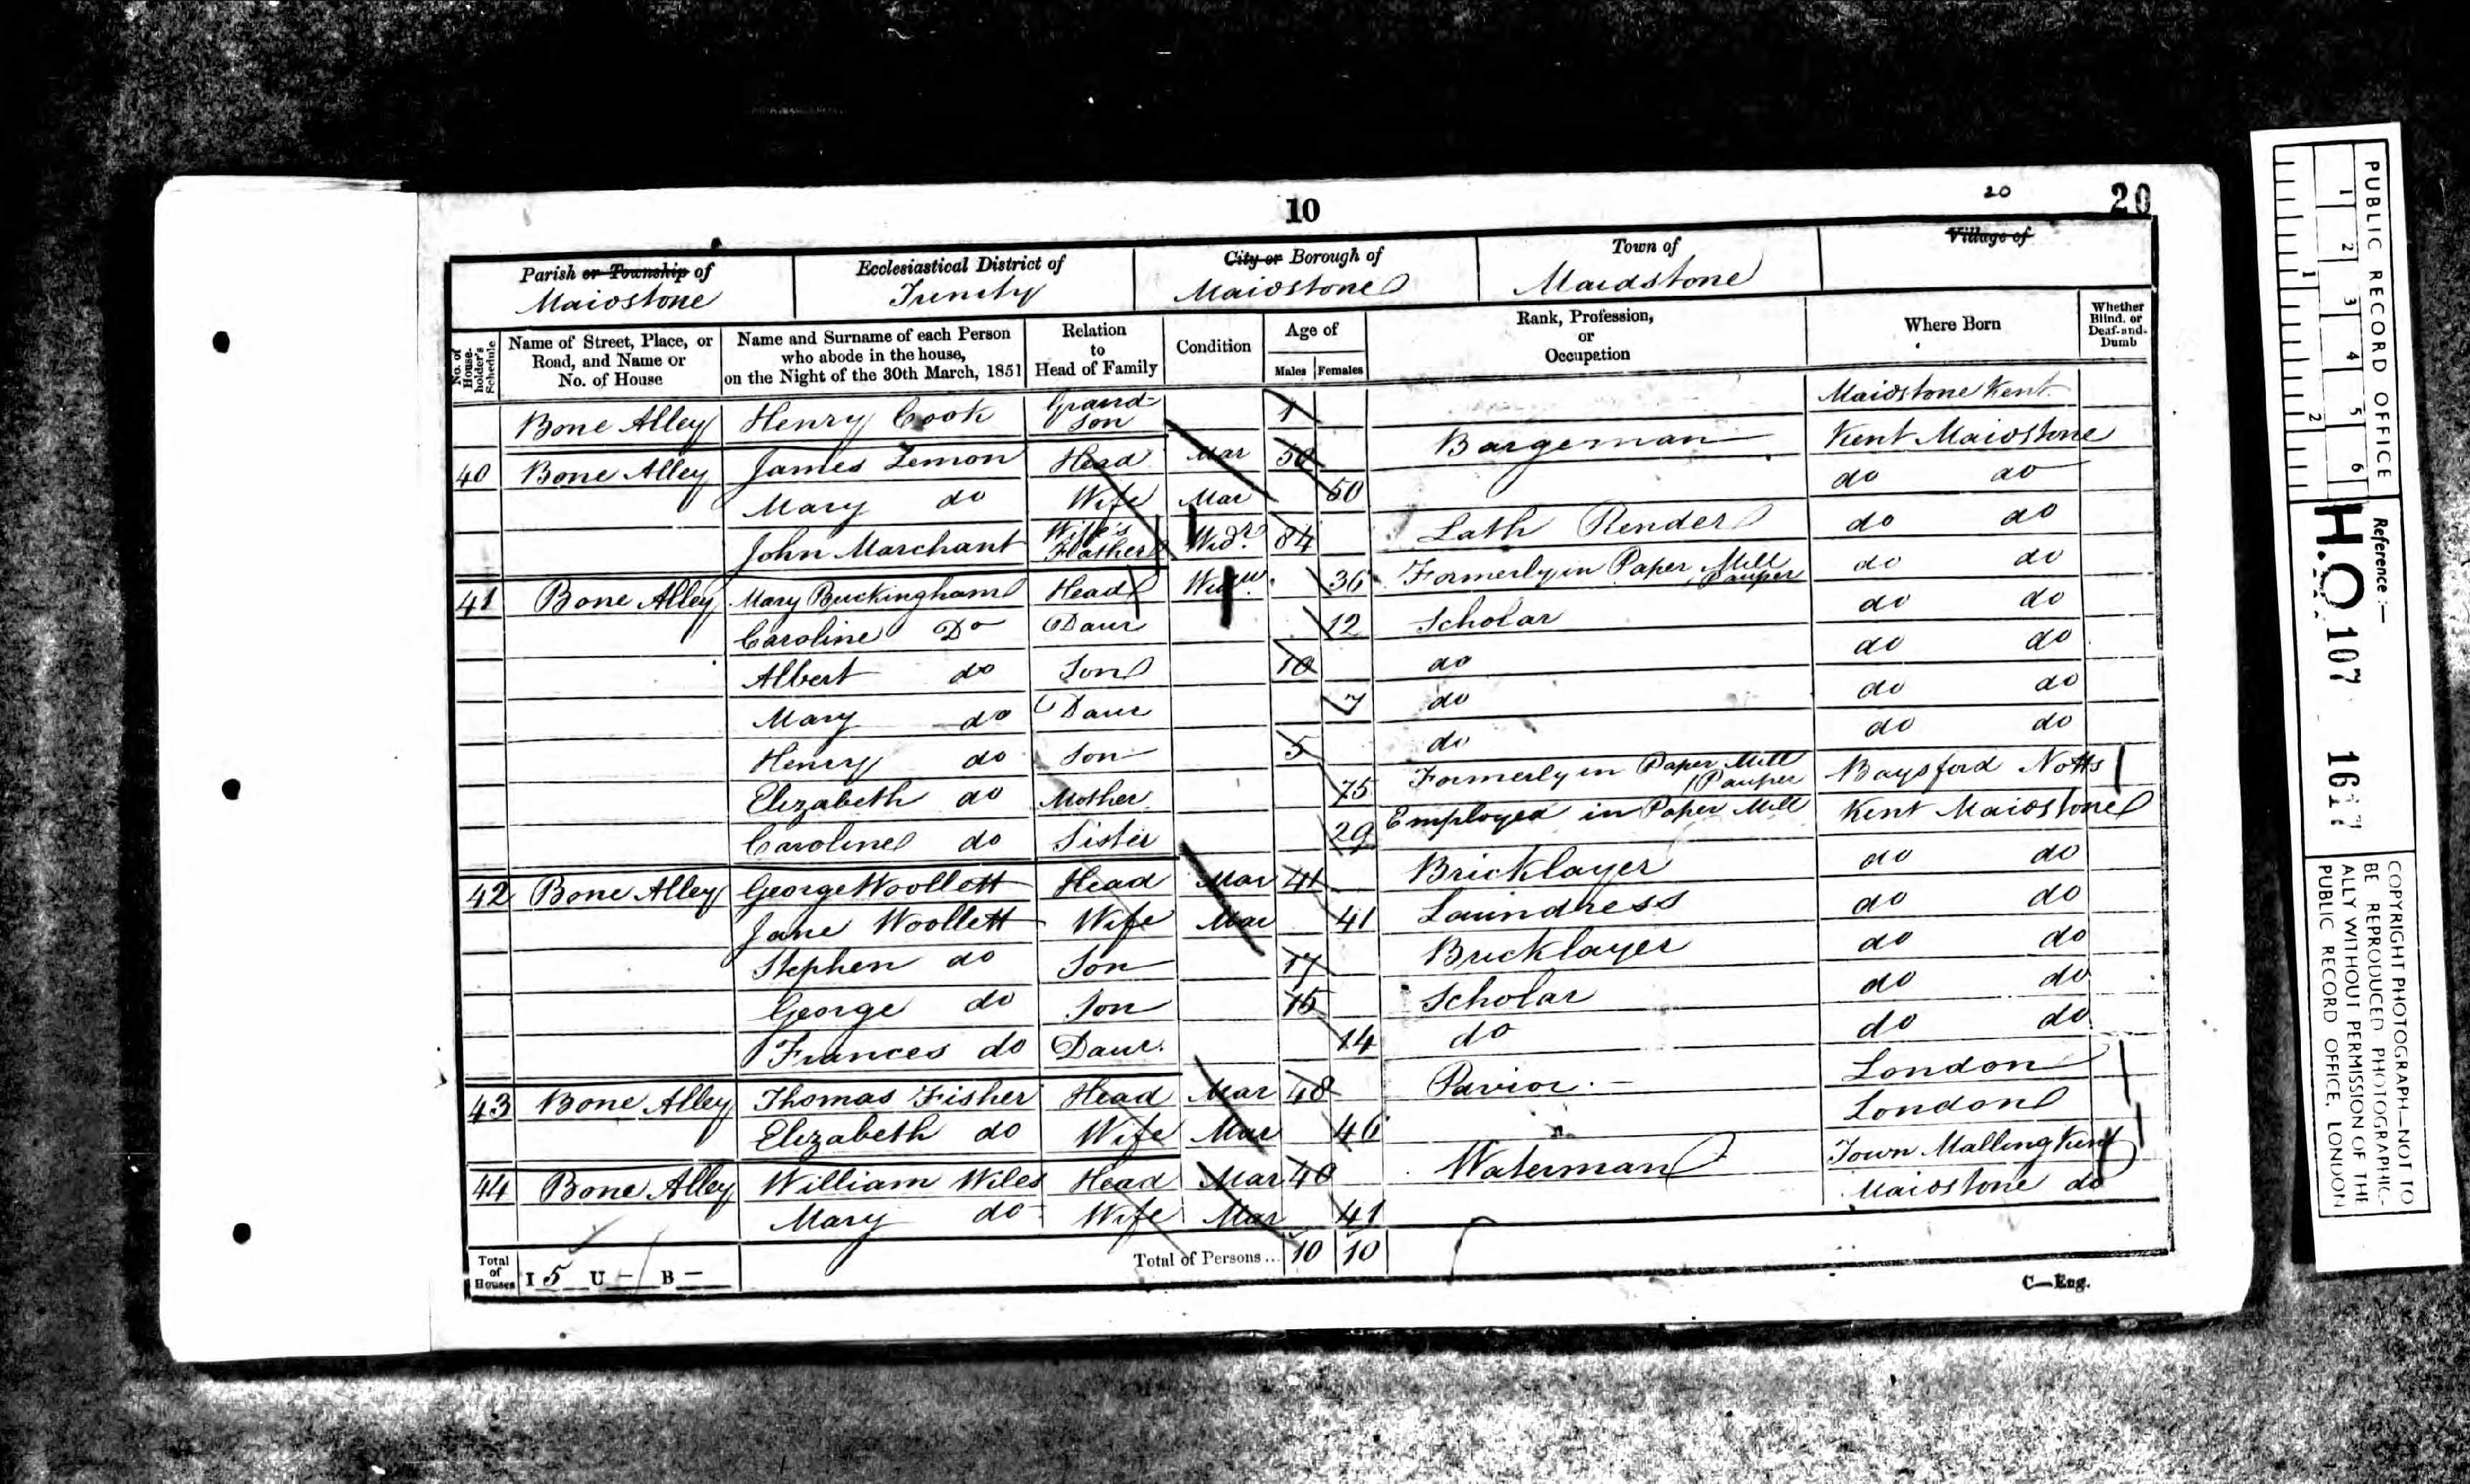 10
20
20
Parish or Township of
Maidstone
Ecclesiastical District of
Trinity
City or Borough of
Maidstone
Town of
Maidstone
Village of
No. of House-holder's Schedule
Name of Street, Place, or Road, and Name or No. of House
Name and Surname of each Person who abode in the house, on the Night of the 30th March, 1851
Relation to Head of Family
Condition
Age of
Males Females
Rank, Profession, or Occupation
Where Born
Whether Blind, or Deaf-and-Dumb
Bone Alley Henry Cook Grand-Son 1 Maidstone Kent
40 Bone Alley James Lemon Head Mar 50 Bargeman Kent Maidstone
Mary do Wife Mar 50 do do
John Marchant Wife's Father Widr. 84 Lath Render do do
41 Bone Alley Mary Buckingham Head Widw. 36 Formerly in Paper Mill Pauper do do
Caroline Do Daur 12 Scholar do do
Albert do Son 10 do do do
Mary do Daur 7 do do do
Henry do Son 5 do do do
Elizabeth do Mother 75 Formerly in Paper Mill Pauper Baysford Notts
Caroline do Sister 29 Employed in Paper Mill Kent Maidstone
42 Bone Alley George Woollett Head Mar 41 Bricklayer do do
Jane Woollett Wife Mar 41 Laundress do do
Stephen do Son 17 Bricklayer do do
George do Son 15 Scholar do do
Frances do Daur. 14 do do do
43 Bone Alley Thomas Fisher Head Mar 48 Pavior London
Elizabeth do Wife Mar 46 London
44 Bone Alley William Wiles Head Mar 40 Waterman Town Malling Kent
Mary do Wife Mar 41 Maidstone do
Total of Houses I 5 U – B – Total of Persons... 10 10
C—Eng.
PUBLIC RECORD OFFICE
1 2 3 4 5 6
1 2
Reference:—
H.O. 107 1617
COPYRIGHT PHOTOGRAPH—NOT TO
BE REPRODUCED PHOTOGRAPHIC-
ALLY WITHOUT PERMISSION OF THE
PUBLIC RECORD OFFICE, LONDON